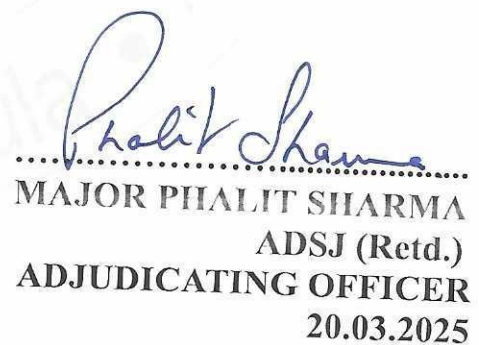 Phalit Sharma
MAJOR PHALIT SHARMA
ADSJ (Retd.)
ADJUDICATING OFFICER
20.03.2025